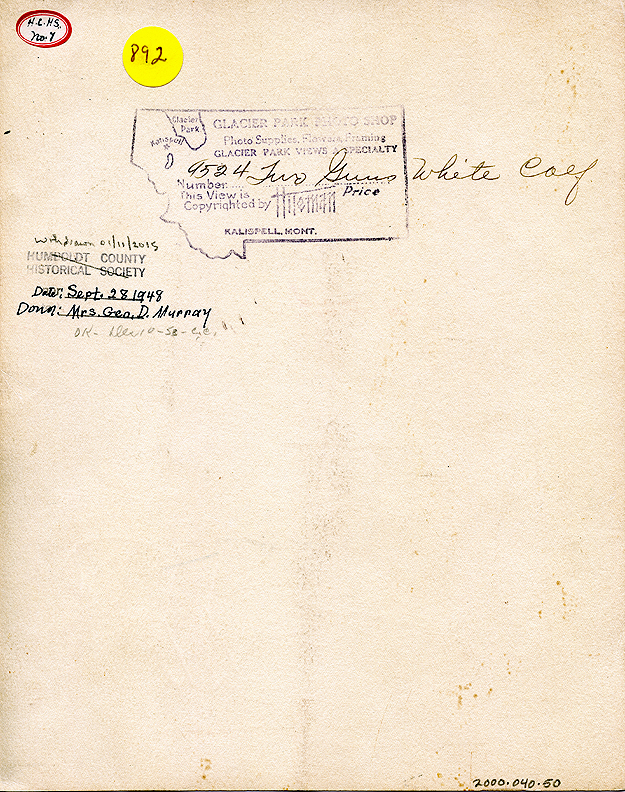 H.C.HS.
No. 7
892
Glacier
Park
Kalispell
GLACIER PARK PHOTO SHOP
Photo Supplies, Flowers, Framing
GLACIER PARK VIEWS A SPECIALTY
Number 9524 Two Guns White Calf
This View is Price
Copyrighted by Hileman
KALISPELL, MONT.
Withdrawn 01/11/2015
HUMBOLDT COUNTY
HISTORICAL SOCIETY
Date: Sept. 28 1948
Donor: Mrs. Geo. D. Murray
OK-
2000.040.50